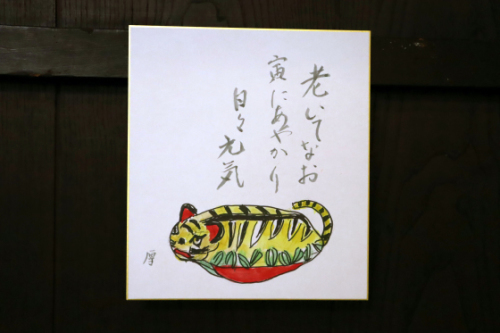 老いてなお
寅にあやかり
日々元気
厚